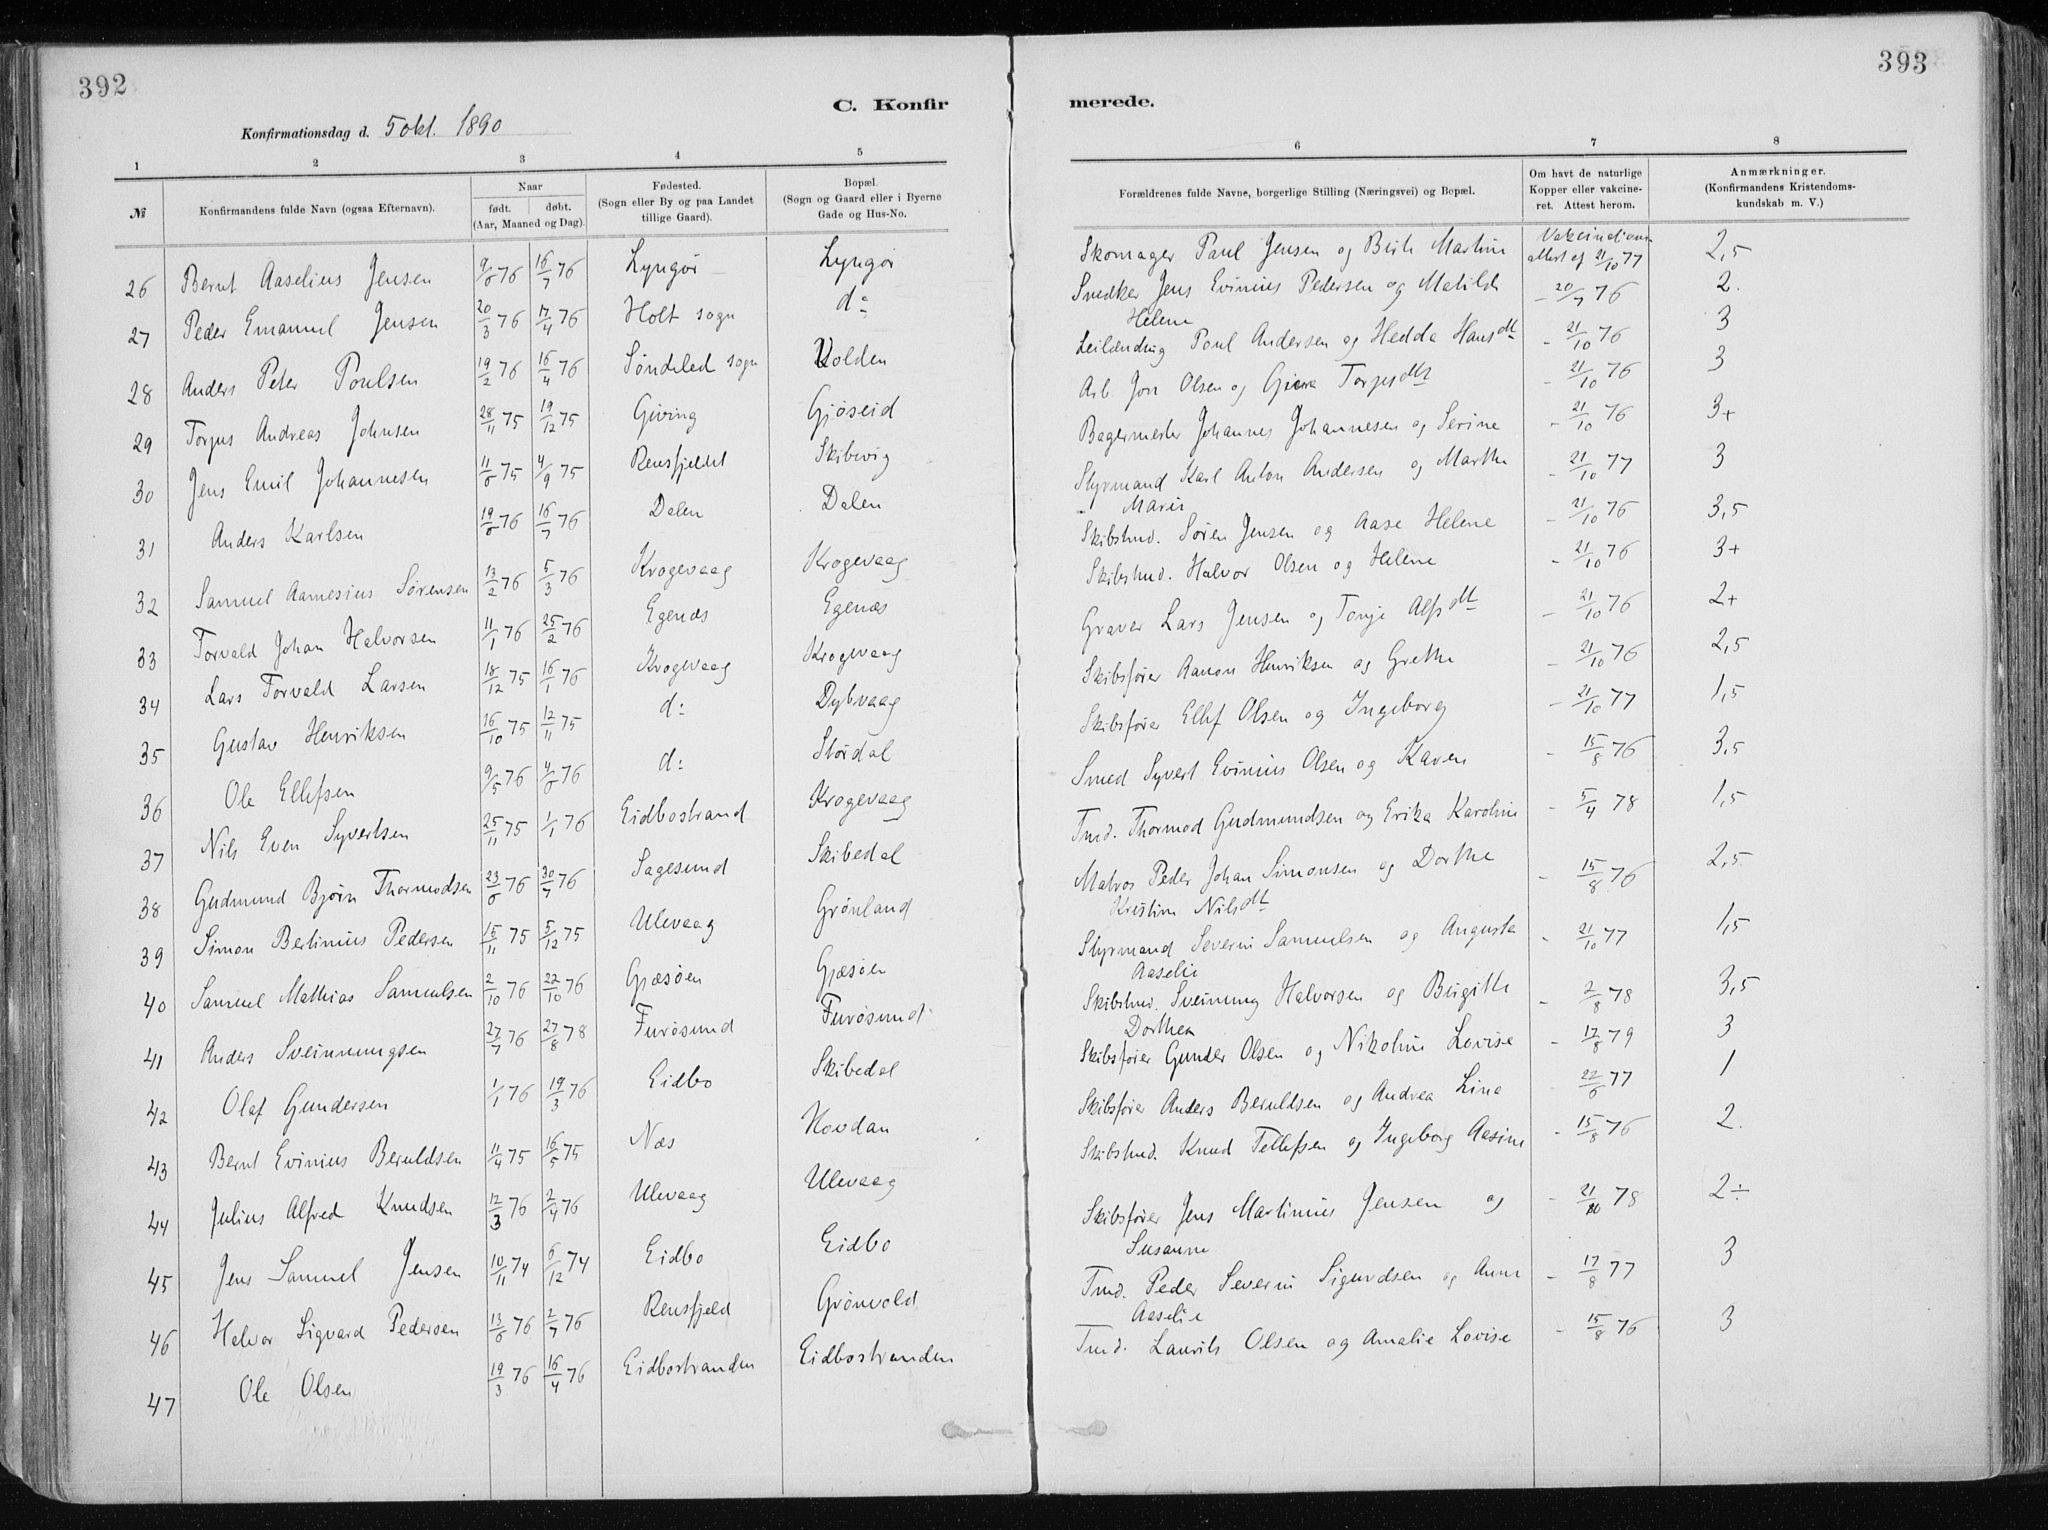 392
393
C. Konfir
merede.
Konfirmationsdag d. 5 okt. 1890
1 2 3 4 5 6 7 8
№ Konfirmandens fulde Navn (ogsaa Efternavn). Naar født. døbt. (Aar, Maaned og Dag). Fødested. (Sogn eller By og paa Landet tillige Gaard). Bopæl. (Sogn og Gaard eller i Byerne Gade og Hus-No. Forældrenes fulde Navne, borgerlige Stilling (Næringsvei) og Bopæl. Om havt de naturlige Kopper eller vakcineret. Attest herom. Anmærkninger. (Konfirmandens Kristendomskundskab m. V.)
26 Bernt Aaselius Jensen 9/6 76 16/7 76 Lyngør Lyngør Skomager Paul Jensen og Birth Martine Vakcinations attest af 21/10 77 2,5
27 Peder Emanuel Jensen 20/3 76 17/4 76 Holt sogn do Snedker Jens Evinius Pedersen og Mathilde Helene - 20/7 76 2.
28 Anders Peter Poulsen 19/2 76 16/4 76 Søndeled sogn Volden Leilænding Poul Andersen og Hedda Hansdt - 21/10 76 3
29 Torjus Andreas Johnsen 28/11 75 19/12 75 Giving Gjöseid Arb. Jon Olsen og Torjusdtt - 21/10 76 3
30 Jens Emil Johannesen 11/6 75 4/9 75 Rensfjeldet Skibvig Bagermester Johannes Johannesen og Serine - 21/10 76 3+
31 Anders Karlsen 19/6 76 16/7 76 Dalen Dalen Styrmand Karl Anton Andersen og Marthe Marie - 21/10 77 3
32 Samuel Aamesius Sørensen 13/2 76 5/3 76 Krogevaag Krogevaag Skibstmd. Søren Jensen og Aase Helene - 21/10 76 3,5
33 Torvald Johan Halvorsen 11/1 76 25/2 76 Egenæs Egenæs Skibstmd. Halvor Olsen og Helene - 21/10 76 3+
34 Lars Torvald Larsen 18/12 75 16/1 76 Krogevaag Krogevaag Graver Lars Jensen og Tonje Alfsdtt - 21/10 76 2+
35 Gustav Henriksen 16/10 75 12/11 75 d: Dybvaag Skibsfører Aanon Henriksen og Grethe - 21/10 76 2,5
36 Ole Ellefsen 9/5 76 4/6 76 d: Stordal Skibsfører Ellef Olsen og Ingeborg - 21/10 77 1,5
37 Nils Even Syvertsen 25/11 75 1/1 76 Eidbostrand Krogevaag Smed Syvert Evinius Olsen og Karen - 15/8 76 3,5
38 Gudmund Bjørn Thormodsen 23/6 76 30/7 76 Sagesund Skibedal Tmd. Thormod Gudmundsen og Erika Karoline - 5/4 78 1,5
39 Simon Bertinius Pedersen 15/11 75 5/12 75 Ulevaag Grönland Matros Peder Johan Simonsen og Dorthe Kristine Nilsdtt - 15/8 76 2,5
40 Samuel Mathias Samuelsen 2/10 76 22/10 76 Gjæsøen Gjæsøen Styrmand Severin Samuelsen og Augusta Aaselie - 21/10 77 1,5
41 Anders Sveinnungsen 27/7 76 27/8 78 Furøsund Furøsund Skibstmd. Sveinung Halvorsen og Birgitte Dorthea - 2/8 78 3,5
42 Olaf Gundersen 1/1 76 19/3 76 Eidbo Skibedal Skibsfører Gunder Olsen og Nikoline Lovise - 17/8 79 3
43 Bernt Evinius Beruldsen 11/4 75 16/5 75 Næs Hovdan Skibsfører Anders Beruldsen og Andrea Lina - 22/6 77 1
44 Julius Alfred Knudsen 12/3 76 2/4 76 Ulevaag Ulevaag Skibstmd. Knud Tellefsen og Ingeborg Aasine - 15/8 76 2.
45 Jens Samuel Jensen 10/11 74 6/12 74 Eidbo Eidbo Skibsfører Jens Martinius Jensen og Susanne - 21/10 78 2÷
46 Halvor Sigvard Pedersen 13/6 76 2/7 76 Rensfjeld Grönvold Tmd. Peder Severin Sigurdsen og Anne Aaselie - 17/8 77 3
47 Ole Olsen 19/3 76 16/4 76 Eidbostranden Eidbostranden Tmd. Laurits Olsen og Amalie Lovise - 15/8 76 3